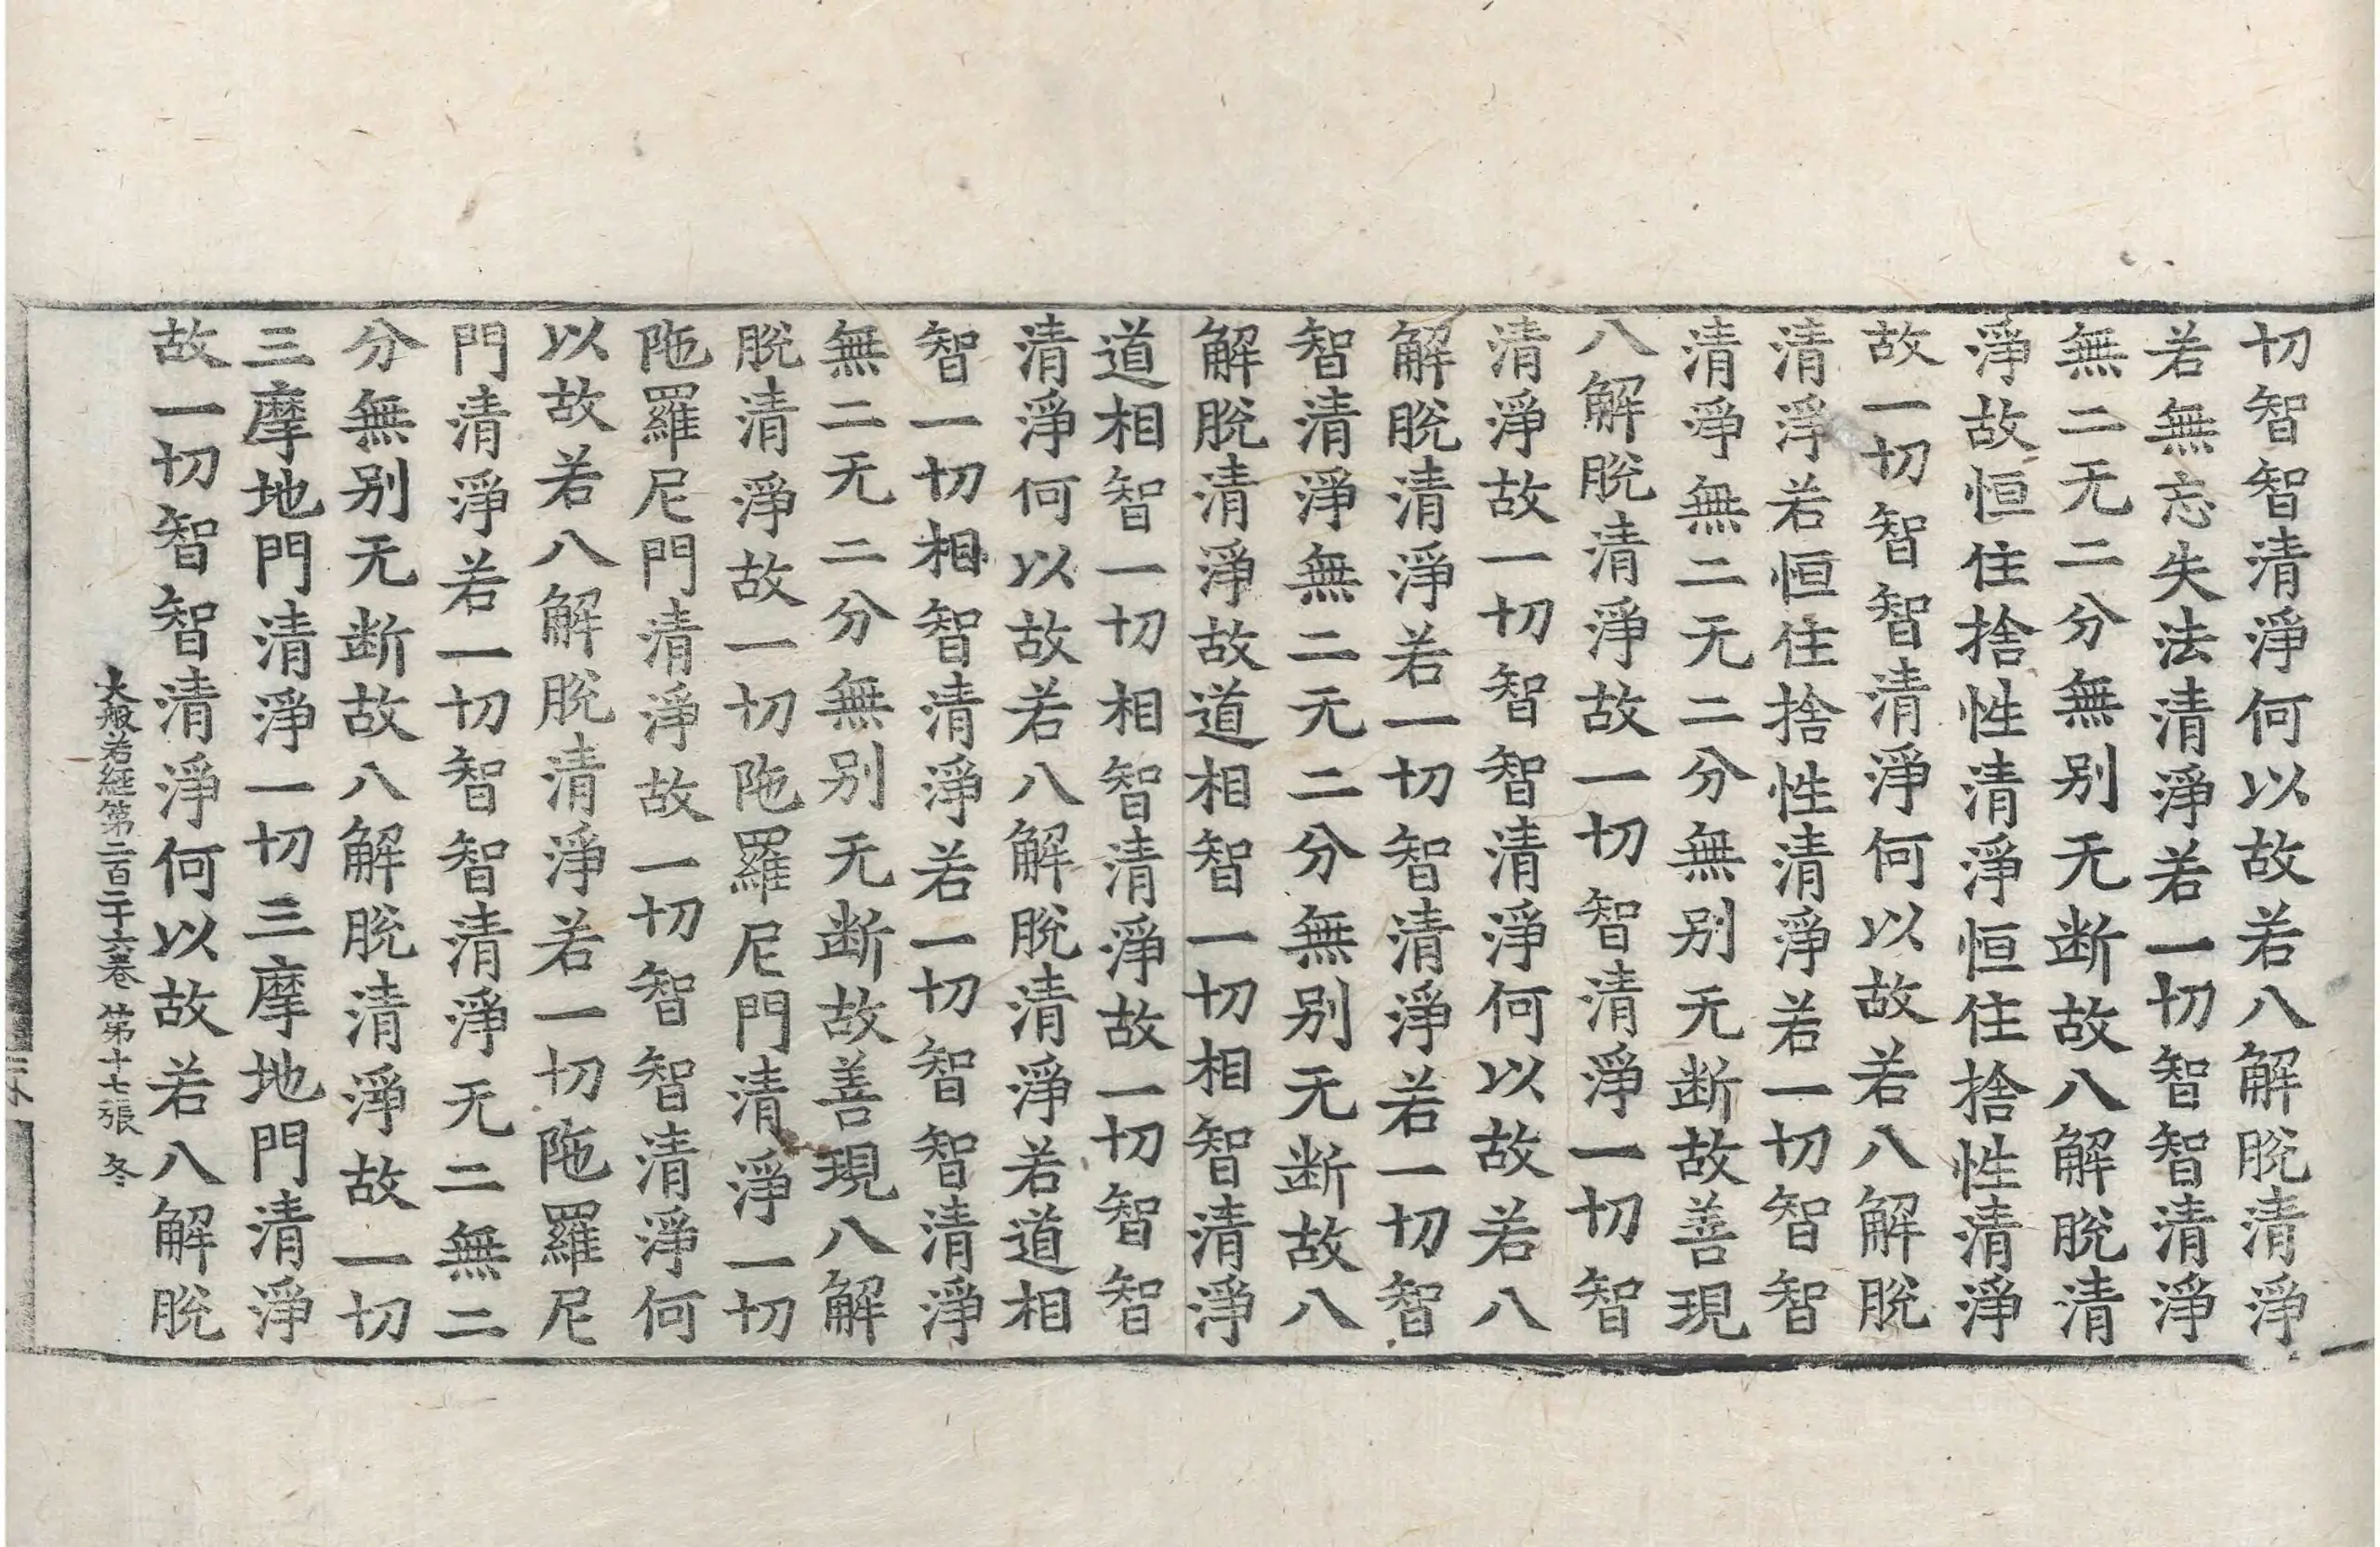 切智智清淨何以故若八解脫清淨
若無忘失法清淨若一切智智清淨
無二无二分無别无断故八解脫清
淨故恒住捨性清淨恒住捨性清淨
故一切智智清淨何以故若八解脫
清淨若恒住捨性清淨若一切智智
清淨無二无二分無别无断故善現
八解脫清淨故一切智清淨一切智
清淨故一切智智清淨何以故若八
解脫清淨若一切智清淨若一切智
智清淨無二无二分無别无断故八
解脫清淨故道相智一切相智清淨
道相智一切相智清淨故一切智智
清淨何以故若八解脫清淨若道相
智一切相智清淨若一切智智清淨
無二无二分無别无断故善現八解
脫清淨故一切陁羅尼門清淨一切
陁羅尼門清淨故一切智智清淨何
以故若八解脫清淨若一切陁羅尼
門清淨若一切智智清淨无二無二
分無别无断故八解脫清淨故一切
三摩地門清淨一切三摩地門清淨
故一切智智清淨何以故若八解脫
大般若經第二百二十六卷 第十七張 冬